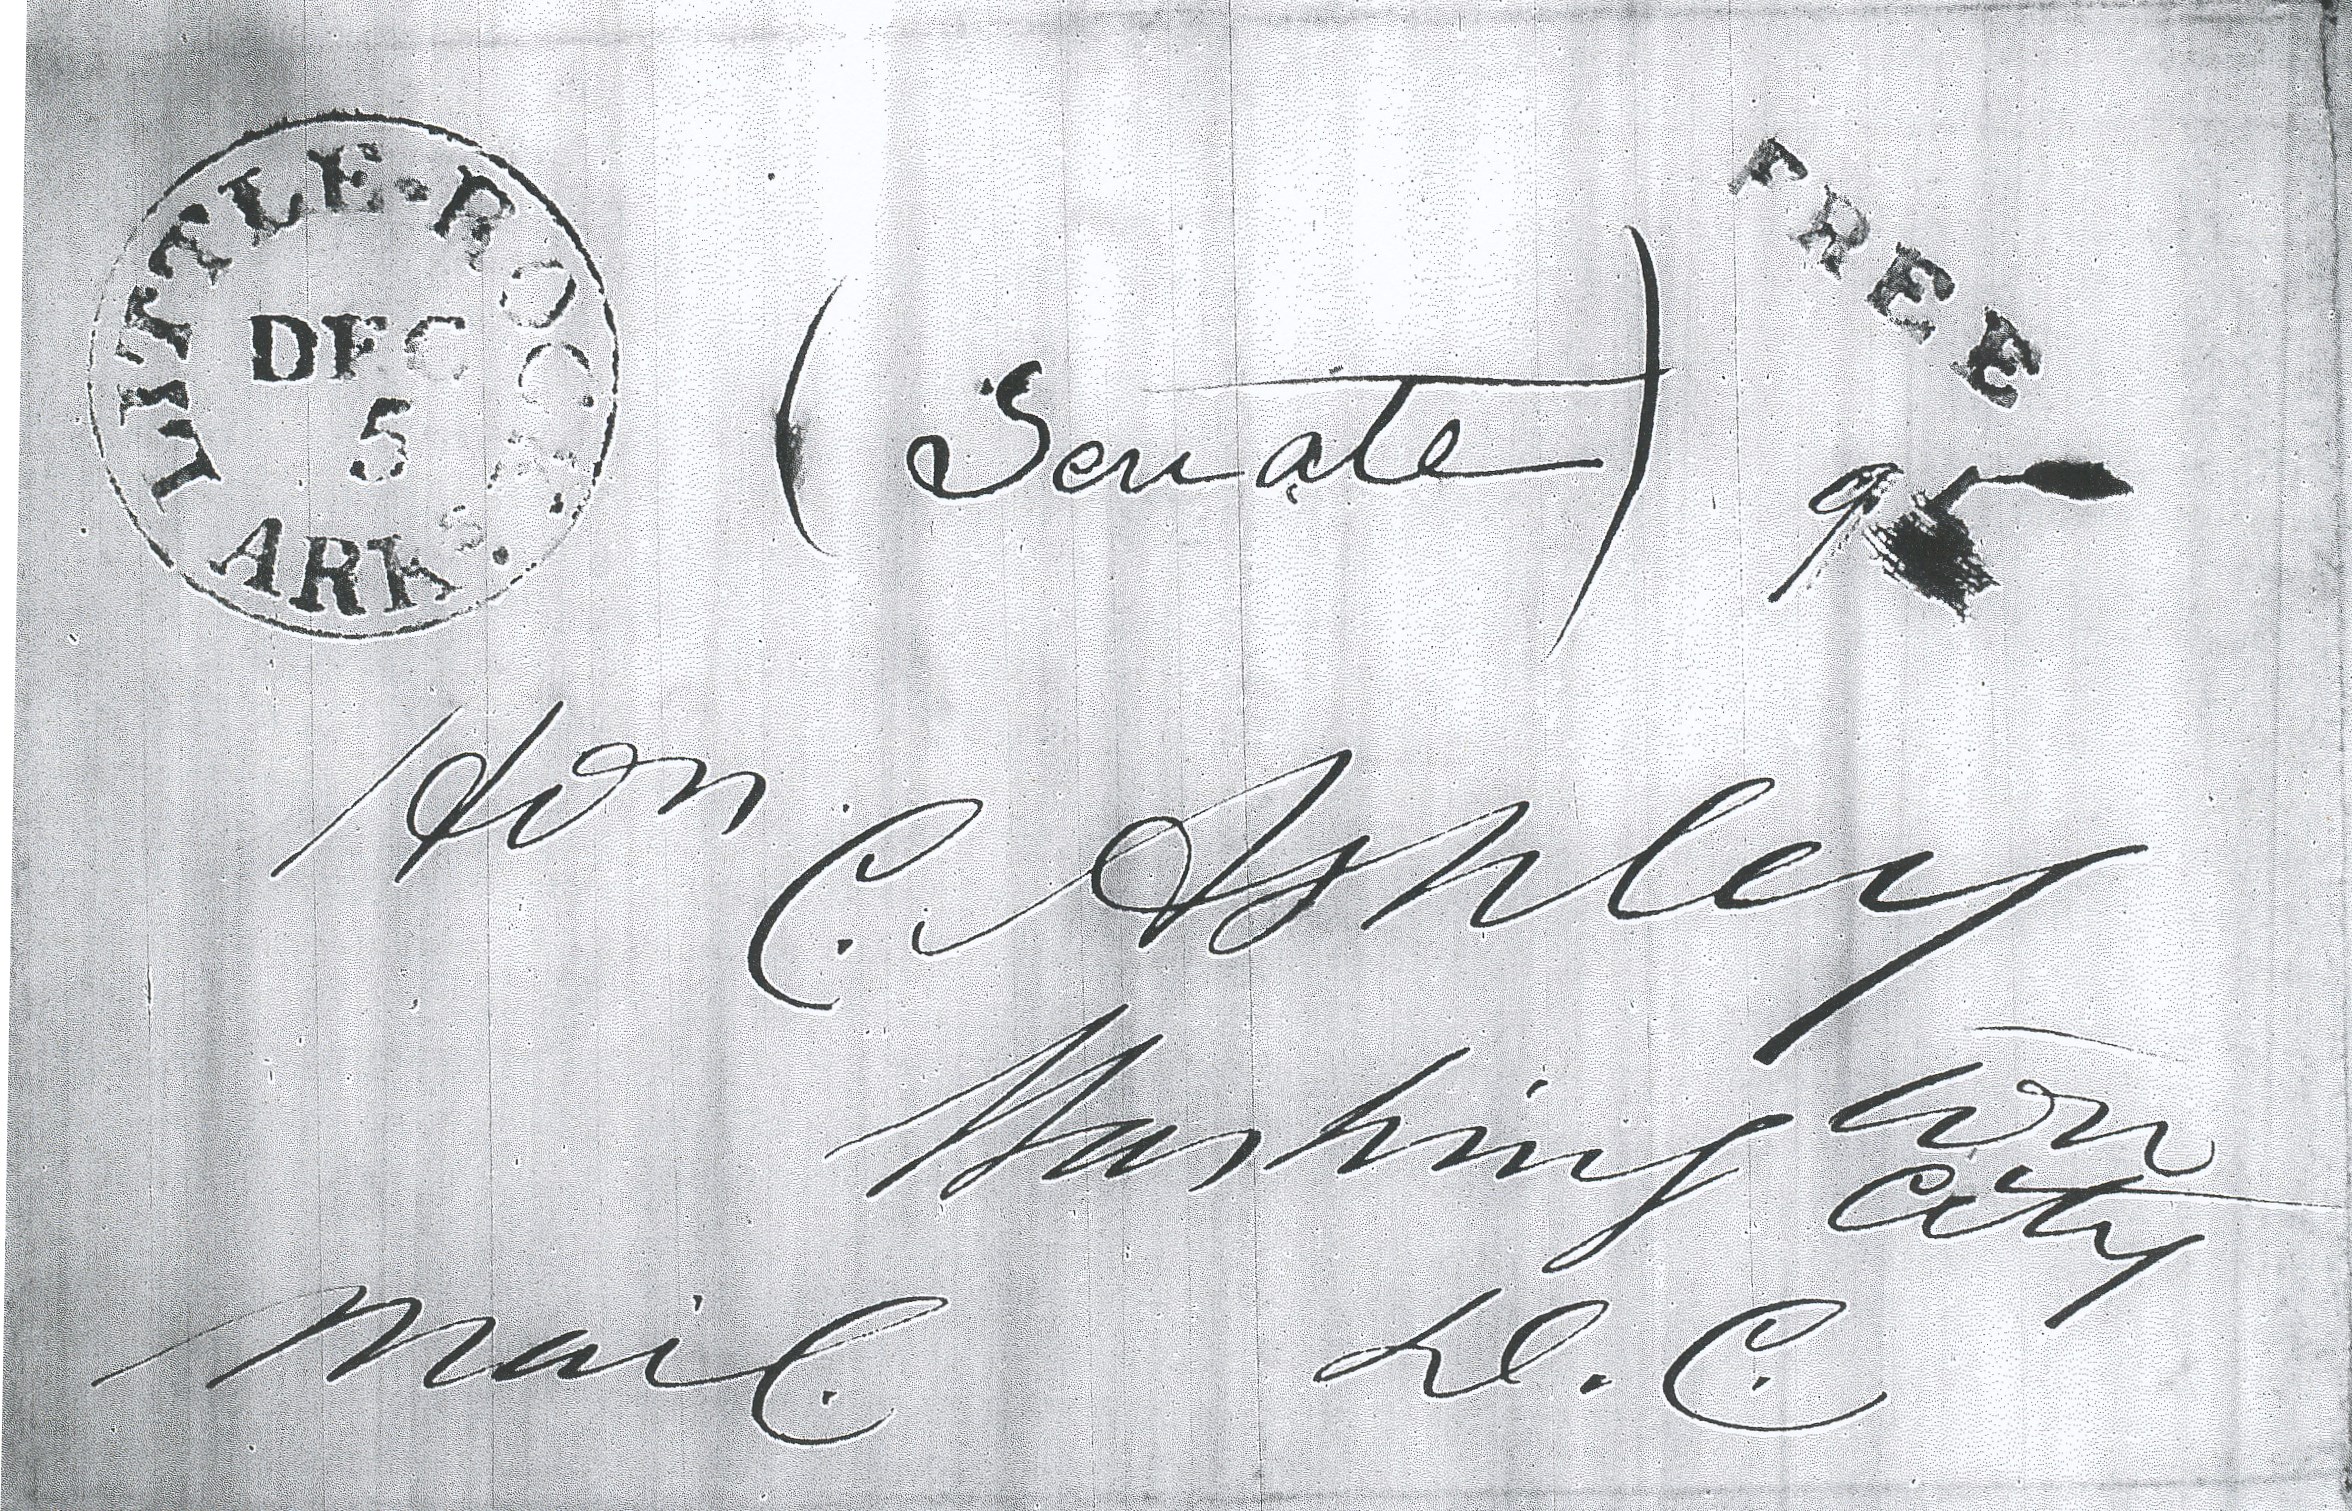 LITTLE-ROCK
DEC
5
ARKS.
FREE
(Senate)
Hon C. Ashley
Washington
City
Mail
D.C.